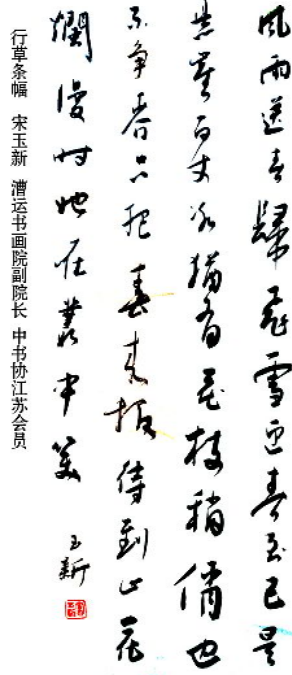 風雨送春歸飛雪迎春到已是
悬崖百丈冰猶有花枝稍俏也
不争春只把春来报待到山花
爛漫时她在叢中笑
玉新
行草条幅 宋玉新 漕运书画院副院长 中书协江苏会员